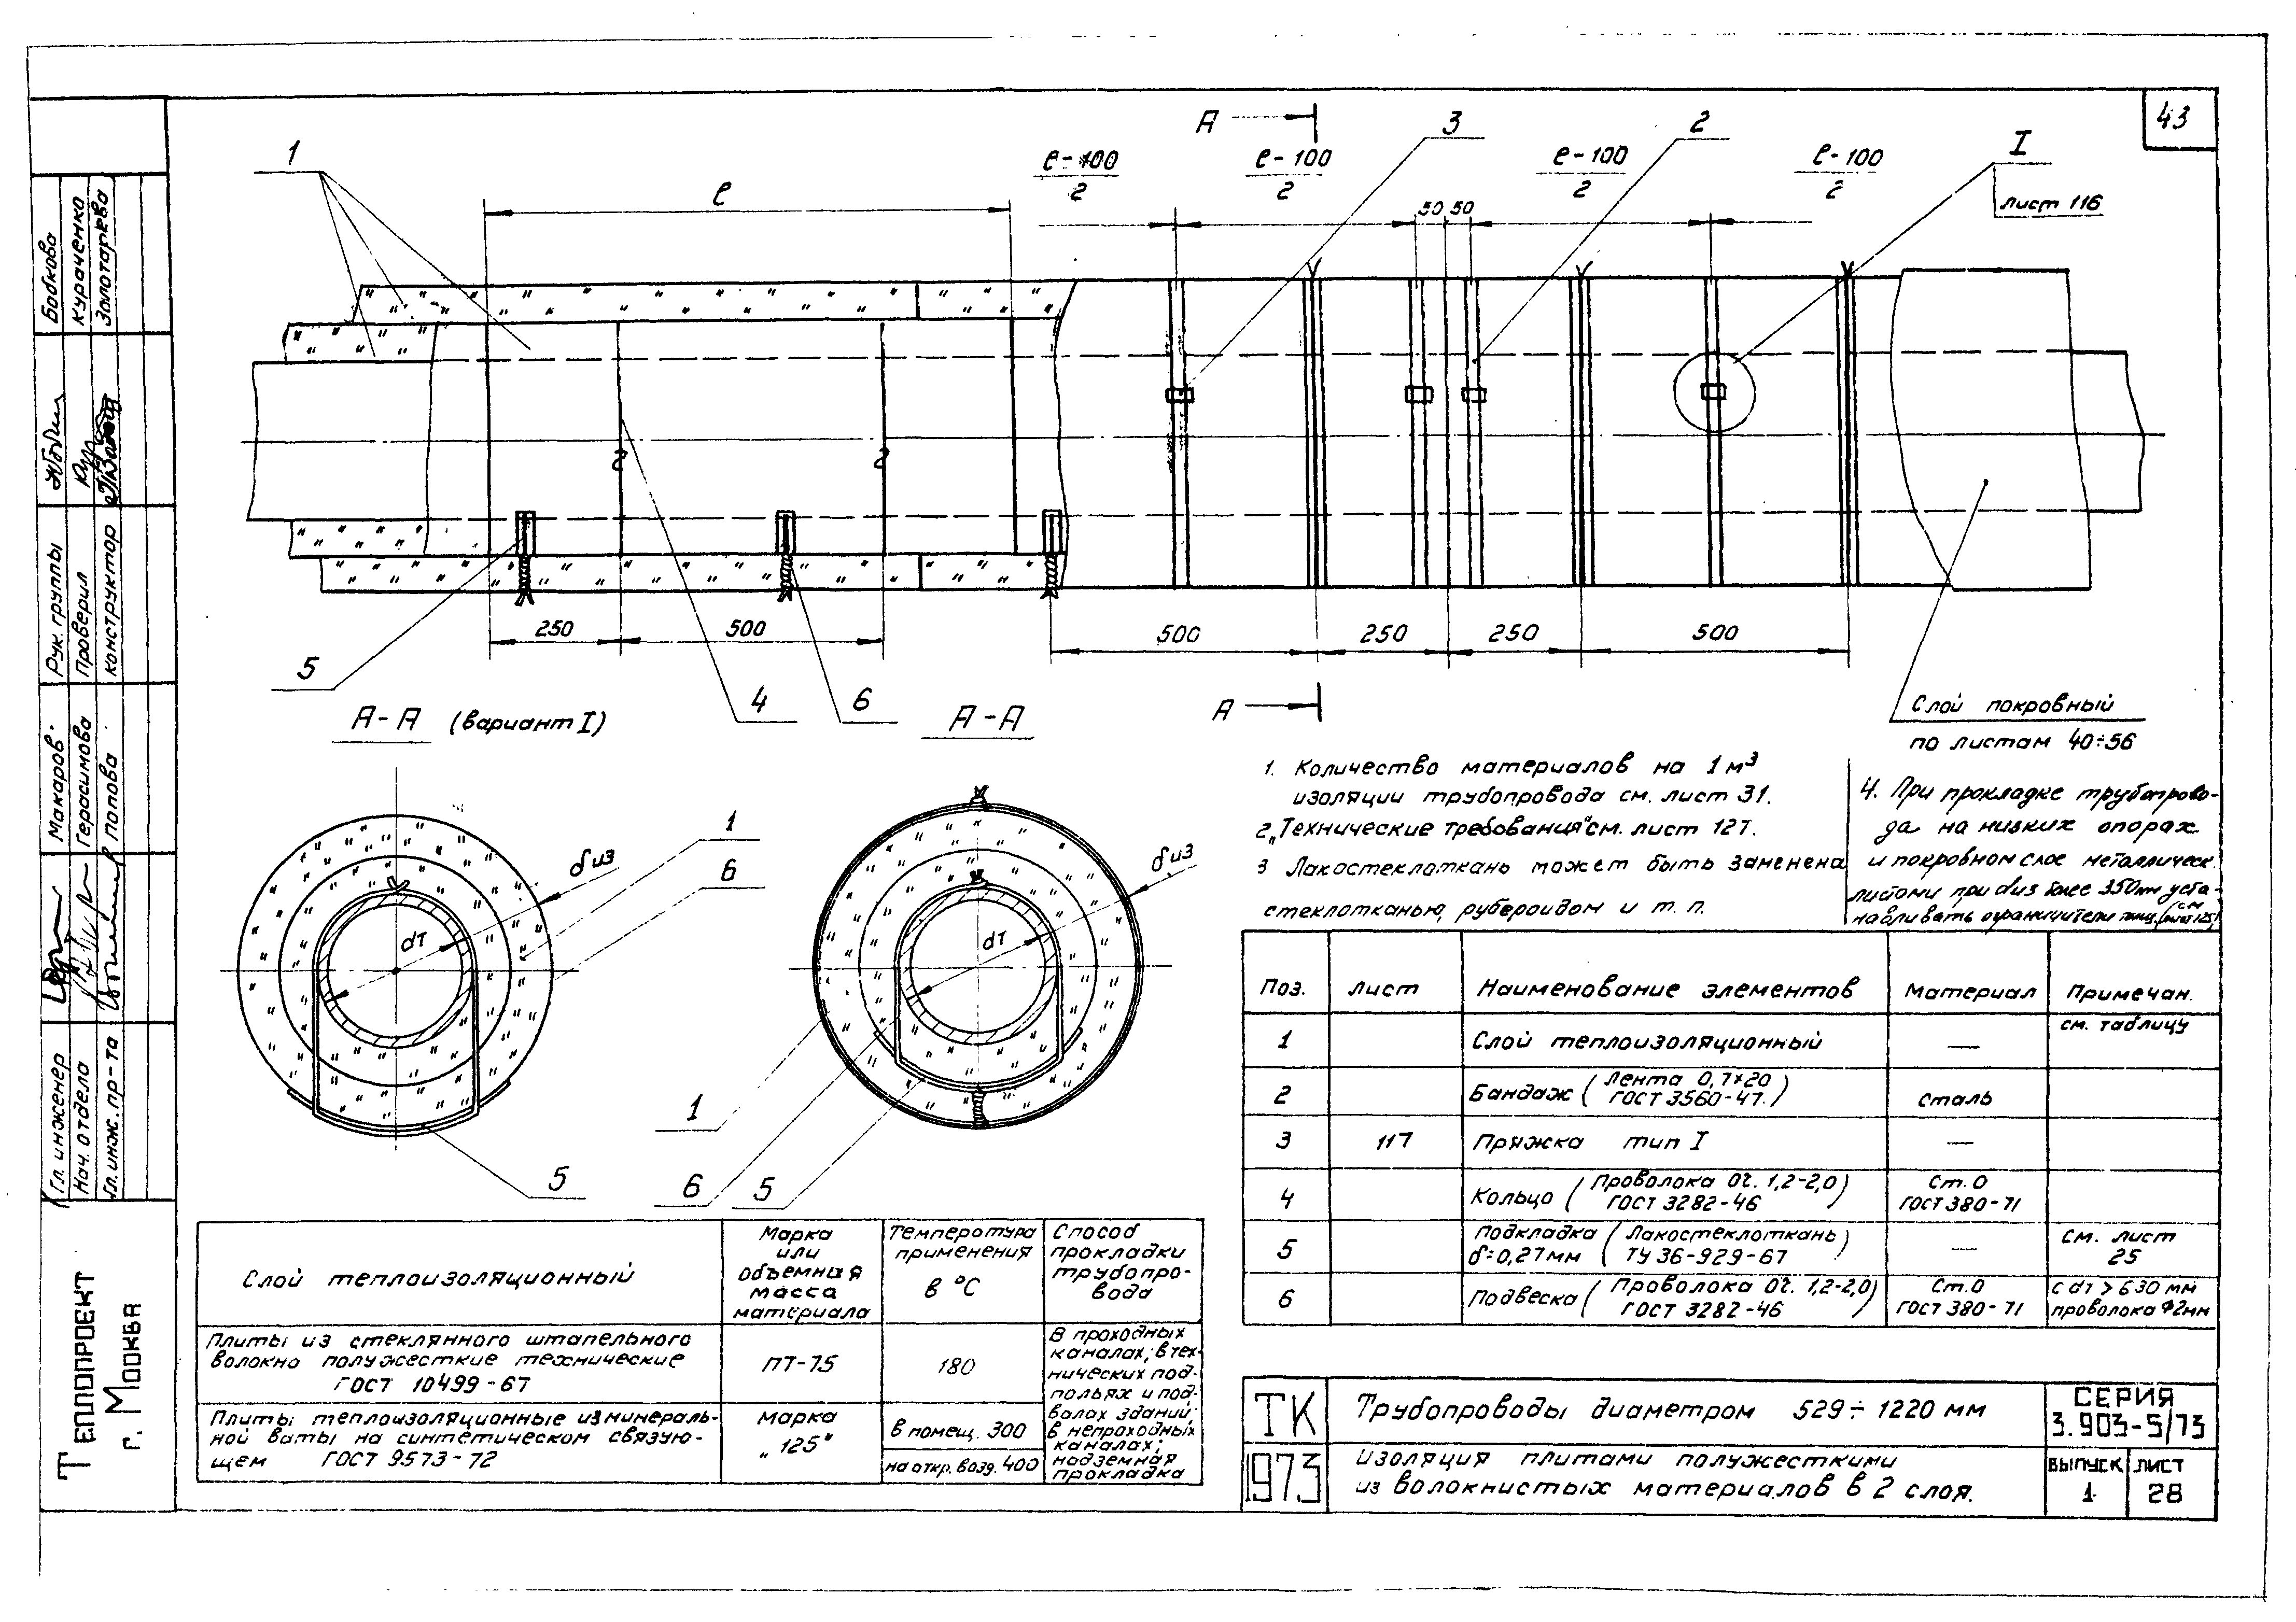 43
А
3
2
I
лист 116
1
ℓ
ℓ-100
2
ℓ-100
2
ℓ-100
2
ℓ-100
2
50 50
250
500
500
250
250
500
5
4
6
А
Слой покровный
по листам 40÷56
А-А (вариант I)
А-А
1
6
δиз
dт
5
δиз
dт
1
6
5
1. Количество материалов на 1 м³
изоляции трубопровода см. лист 31.
2. „Технические требования" см. лист 127.
3 Лакостеклоткань может быть заменена
стеклотканью, рубероидом и т. п.
4. При прокладке трубопрово-
да на низких опорах
и покровном слое металлическ.
листами при dиз более 350мм уста-
навливать ограничители
Поз. лист Наименование элементов Материал Примечан.
1 Слой теплоизоляционный — см. таблицу
2 Бандаж (Лента 0,7×20 ГОСТ 3560-47.) сталь
3 117 Пряжка тип I —
4 Кольцо (Проволока ОЧ. 1,2-2,0 ГОСТ 3282-46) Ст.0 ГОСТ 380-71
5 Подкладка δ=0,27мм (Лакостеклоткань ТУ 36-929-67) — См. лист 25
6 Подвеска (Проволока ОЧ. 1,2-2,0 ГОСТ 3282-46) Ст.0 ГОСТ 380-71 с dт > 630 мм проволока Ф2мм
Слой теплоизоляционный
Марка или объемная масса материала
Температура применения в °С
Способ прокладки трубопро-вода
Плиты из стеклянного штапельного
волокна полужесткие технические
ГОСТ 10499-67
ПТ-75
180
Плиты теплоизоляционные из минераль-
ной ваты на синтетическом связую-
щем ГОСТ 9573-72
Марка
„125"
в помещ. 300
на откр. возд. 400
В проходных
каналах; в тех-
нических под-
польях и под-
валах зданий;
в непроходных
каналах;
надземная
прокладка
ТК
1973
Трубопроводы диаметром 529÷1220 мм
Изоляция плитами полужесткими
из волокнистых материалов в 2 слоя.
СЕРИЯ
3.903-5/73
ВЫПУСК
1
ЛИСТ
28
Бобкова
Кураченко
Золотарева
Рук. группы
Проверил
конструктор
Макаров
Герасимова
Попова
Гл. инженер
Нач. отдела
Гл. инж. пр-та
ТЕПЛОПРОЕКТ
г. Москва